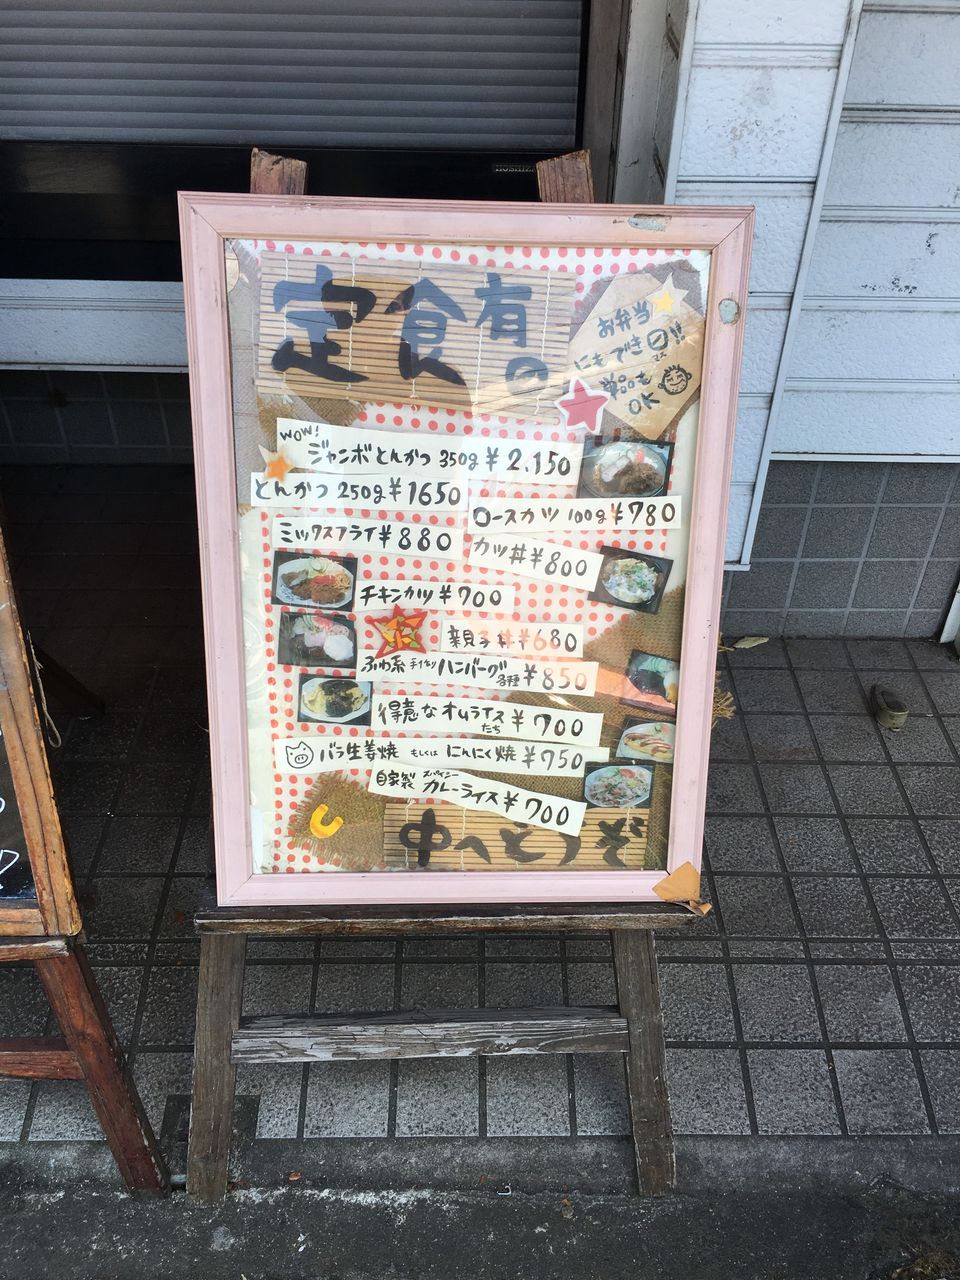 HOSHIZA
定食有の
お弁当
にもでき〼!!
マス
単品も
OK
WOW!
ジャンボとんかつ 350g ¥2,150
とんかつ 250g ¥1650
ロースカツ 100g ¥780
ミックスフライ ¥880
カツ丼 ¥800
チキンカツ ¥700
親子丼 ¥680
ふわ系 手作り ハンバーグ 各種 ¥850
得意なオムライスたち ¥700
バラ生姜焼 もしくは にんにく焼 ¥750
自家製 スパイシー カレーライス ¥700
中へどうぞ